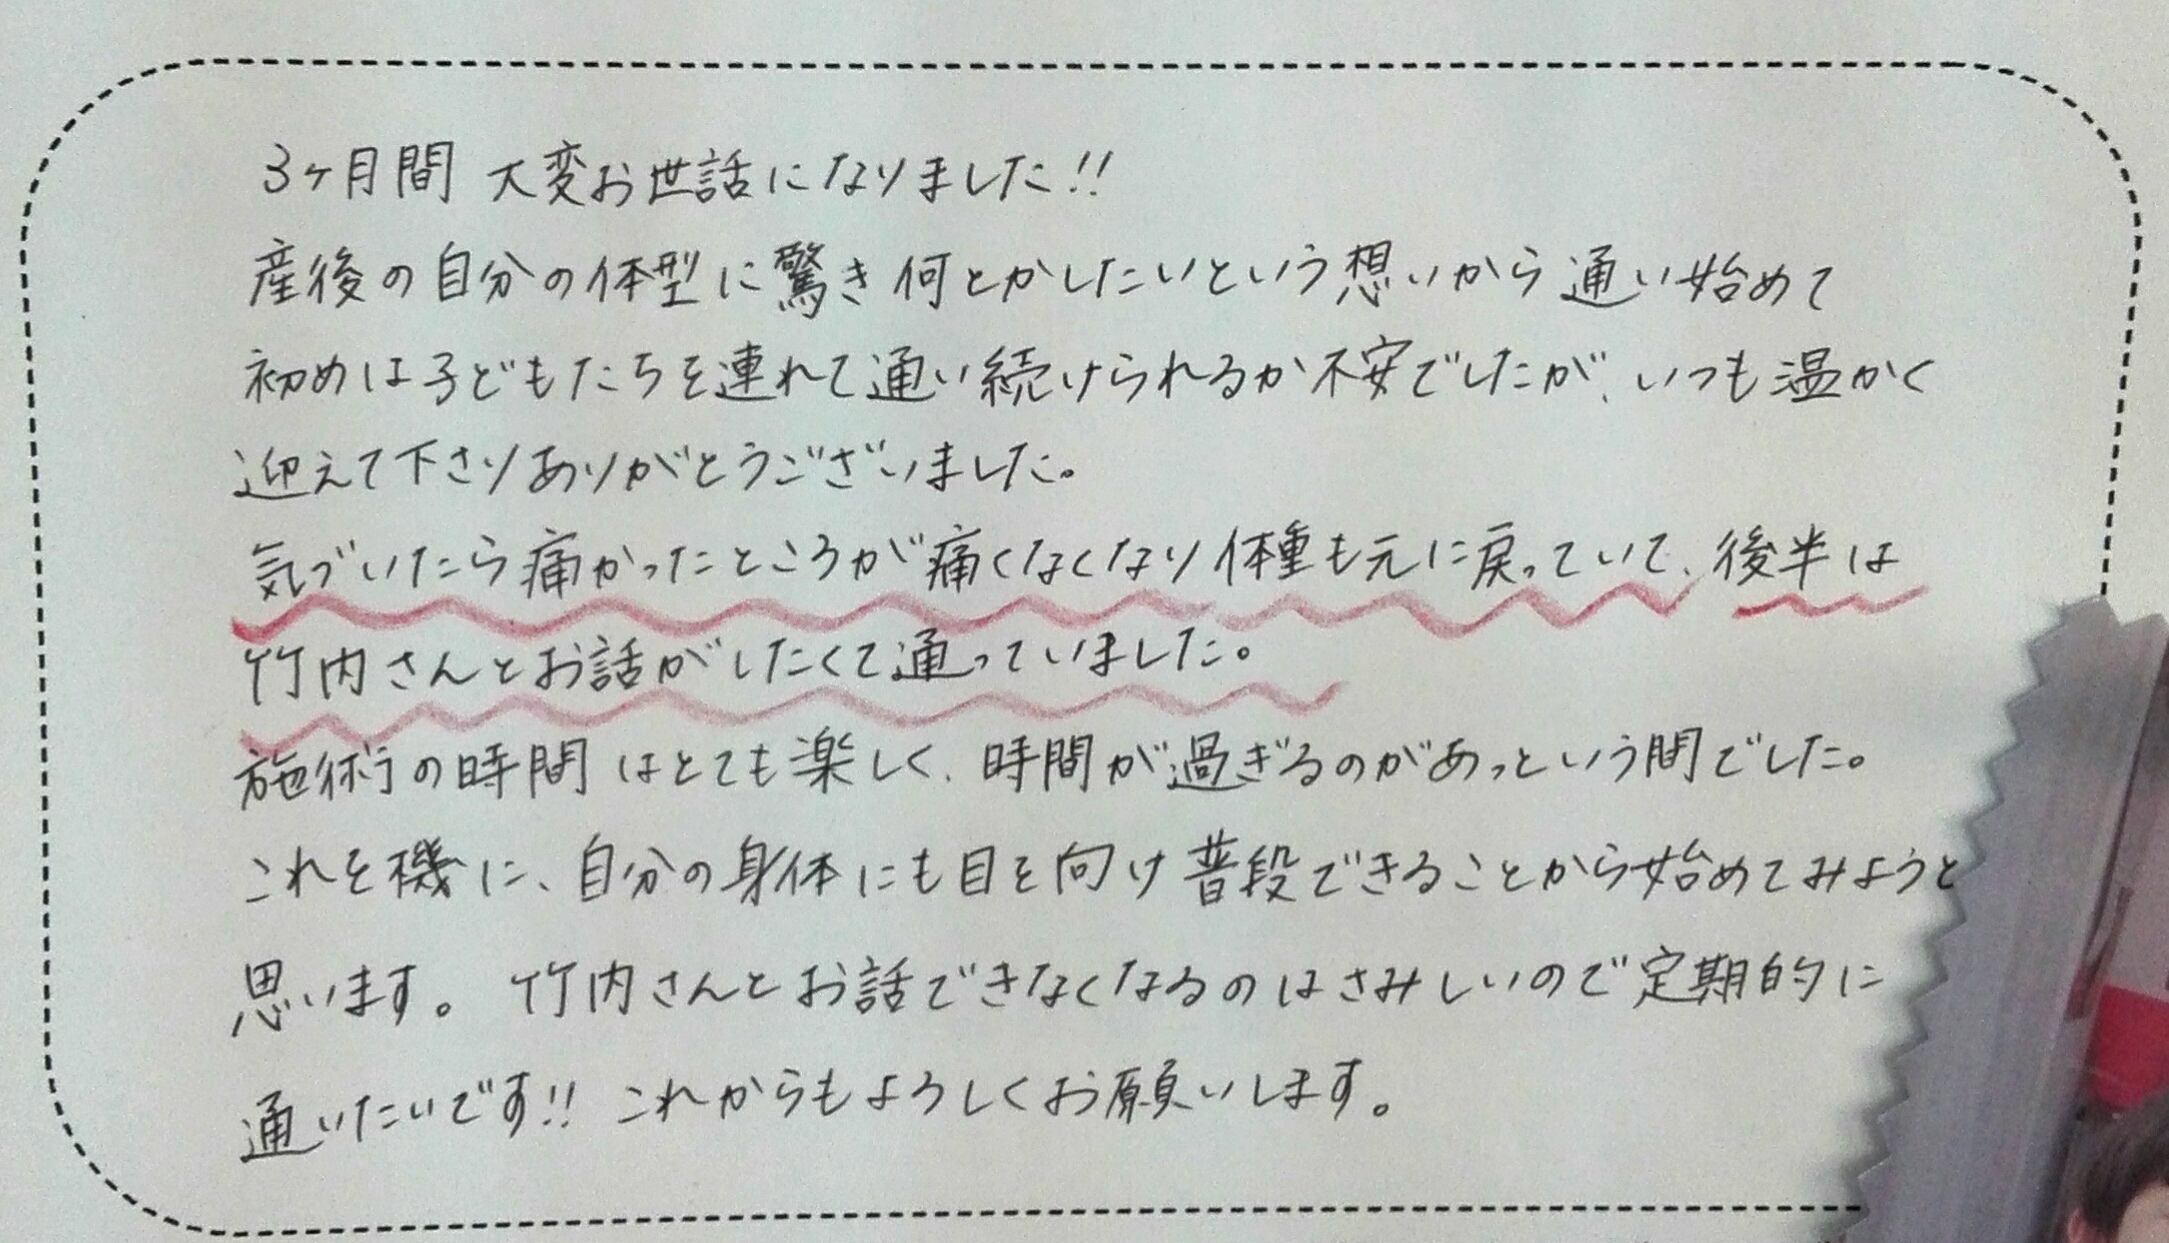 3ヶ月間 大変お世話になりました!!
産後の自分の体型に驚き何とかしたいという想いから通い始めて
初めは子どもたちを連れて通い続けられるか不安でしたが、いつも温かく
迎えて下さりありがとうございました。
気づいたら痛かったところが痛くなくなり体重も元に戻っていて、後半は
竹内さんとお話がしたくて通っていました。
施術の時間はとても楽しく、時間が過ぎるのがあっという間でした。
これを機に、自分の身体にも目を向け普段できることから始めてみようと
思います。竹内さんとお話できなくなるのはさみしいので定期的に
通いたいです!! これからもよろしくお願いします。